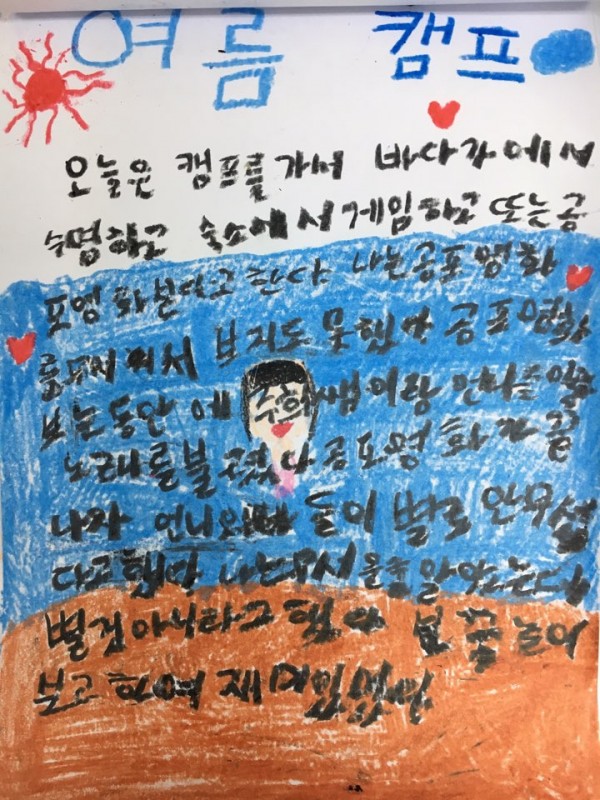 여름 캠프
오늘은 캠프를 가서 바다가에서
수영하고 숙소에서 게임하고 또는 공
포영화본다고 한다 나는공포영화
를무서워서 보지도 못했다 공포영화
보는동안에 주희쌤이랑 언니들이랑
노래를불렀다 공포영화가 끝
나자 언니와 들이 별로 안무섭
다고했다 나는무서울줄알았는데
별거아니라고 했다 놀이
보고 하여 재미있었다